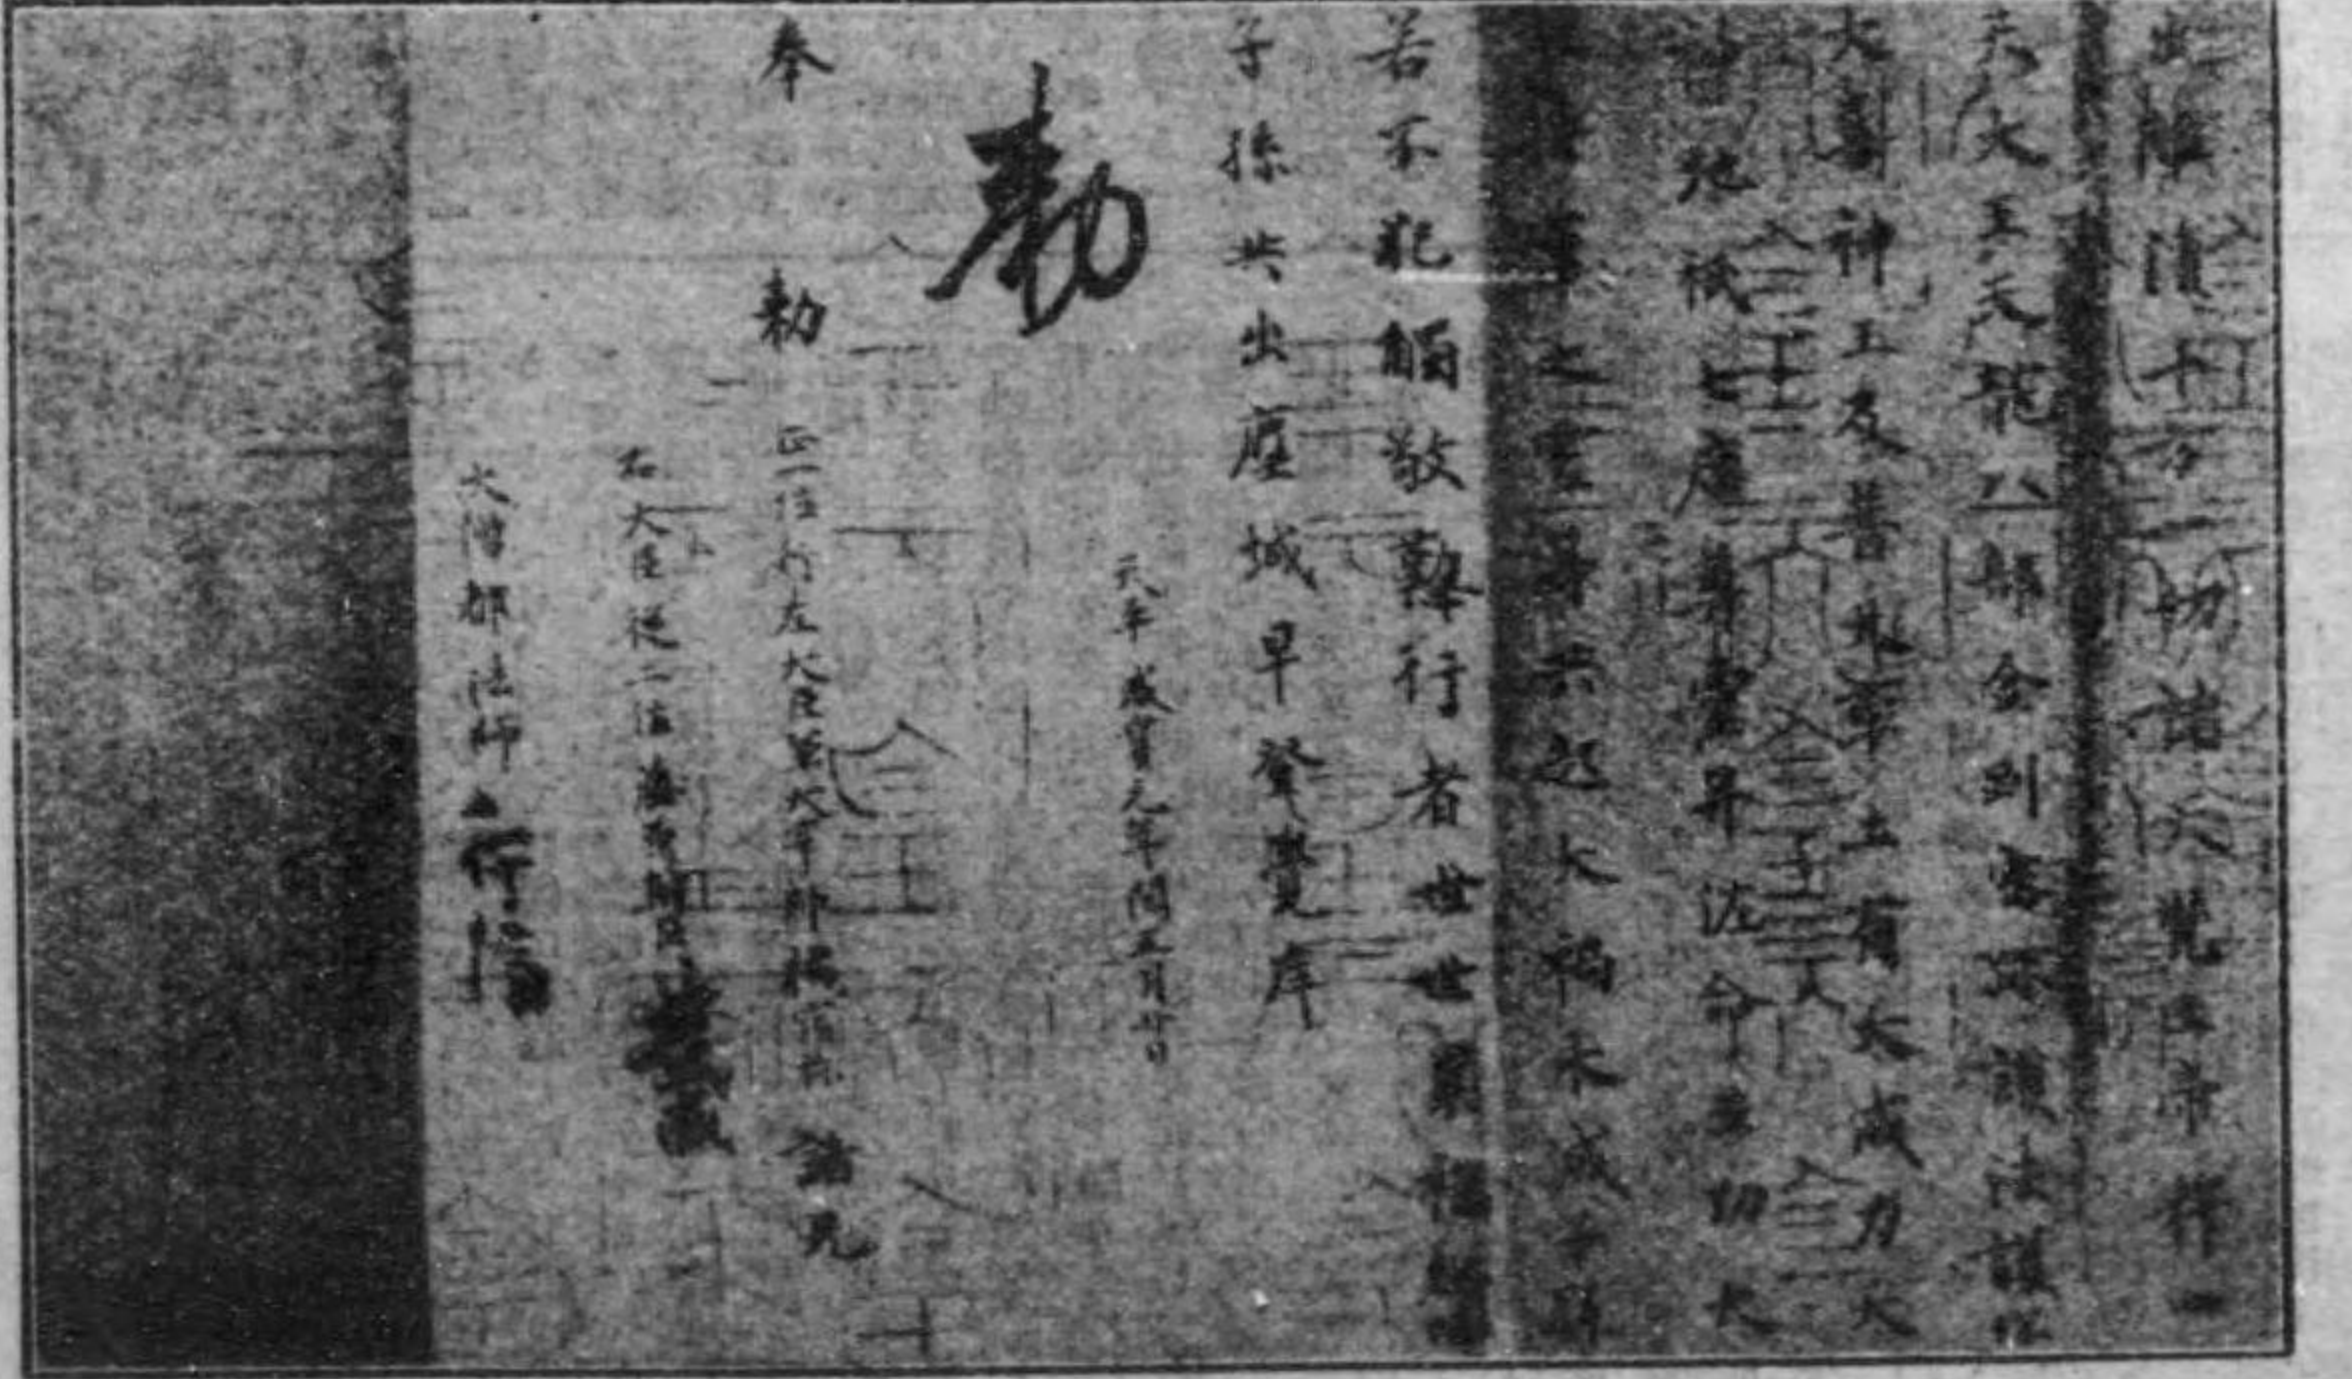 障瀆十方一切諸
天大王天龍八部金剛密跡護法護塔
大善神王及普天率土有大威力天
神地祇七廟尊霊幷佐命立功大
臣將軍之霊等共起大禍永滅子孫
若不犯觸敬勤行者世世累福終隆
子孫共出塵域早登覺岸
天平感寶元年閏五月廿日
勅
奉 勅 正一位行左大臣兼大宰帥橘宿祢諸兄
右大臣從二位藤原朝臣豊成
大僧都法師行信